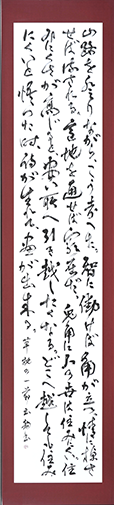 山路を登りながらこう考へた智に働けば角が立つ情に棹さ
せば流される意地を通せば窮屈だ兎角に人の世は住みにくい住
みにくさが高じると安い所へ引き越したくなるどこへ越しても住み
にくいと悟った時詩が生れて画が出来る 草枕の一節